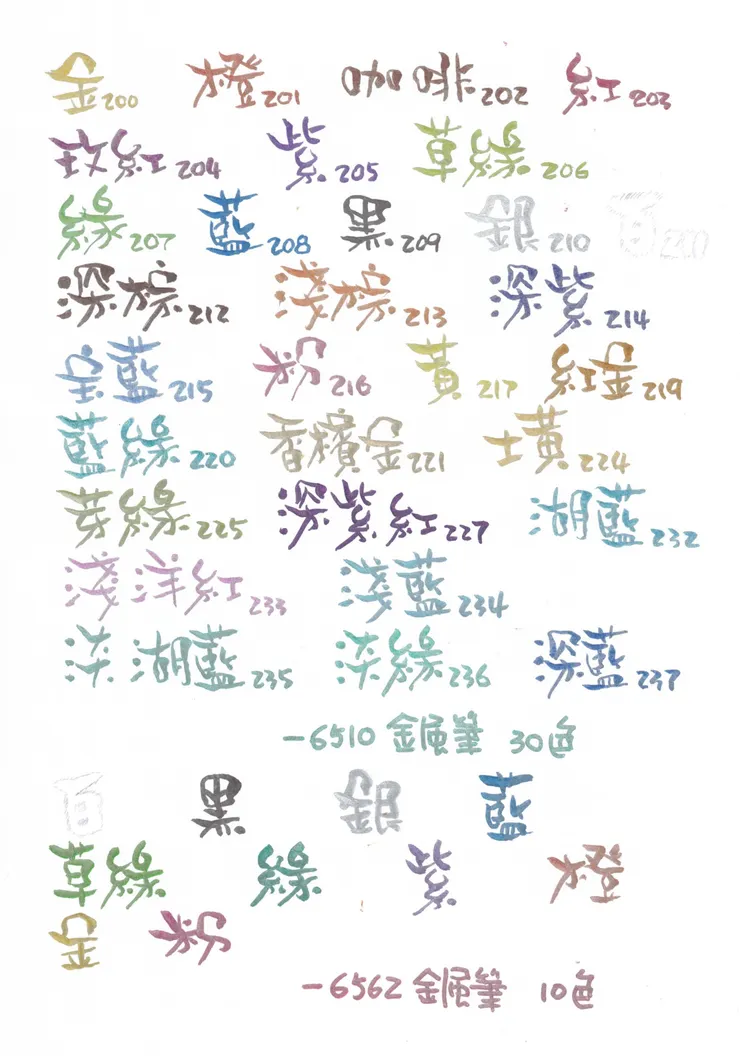 金200 橙201 咖啡202 紅203
玫紅204 紫205 草緣206
緣207 藍208 黑209 銀210 白211
深棕212 淺棕213 深紫214
宝藍215 粉216 黃217 紅金219
藍緣220 香檳金221 土黃224
芽緣225 深紫紅227 湖藍232
淺洋紅233 淺藍234
淡湖藍235 淡緣236 深藍237
-6510 金属筆 30色
白 黑 銀 藍
草緣 緣 紫 橙
金 粉
-6562 金属筆 10色